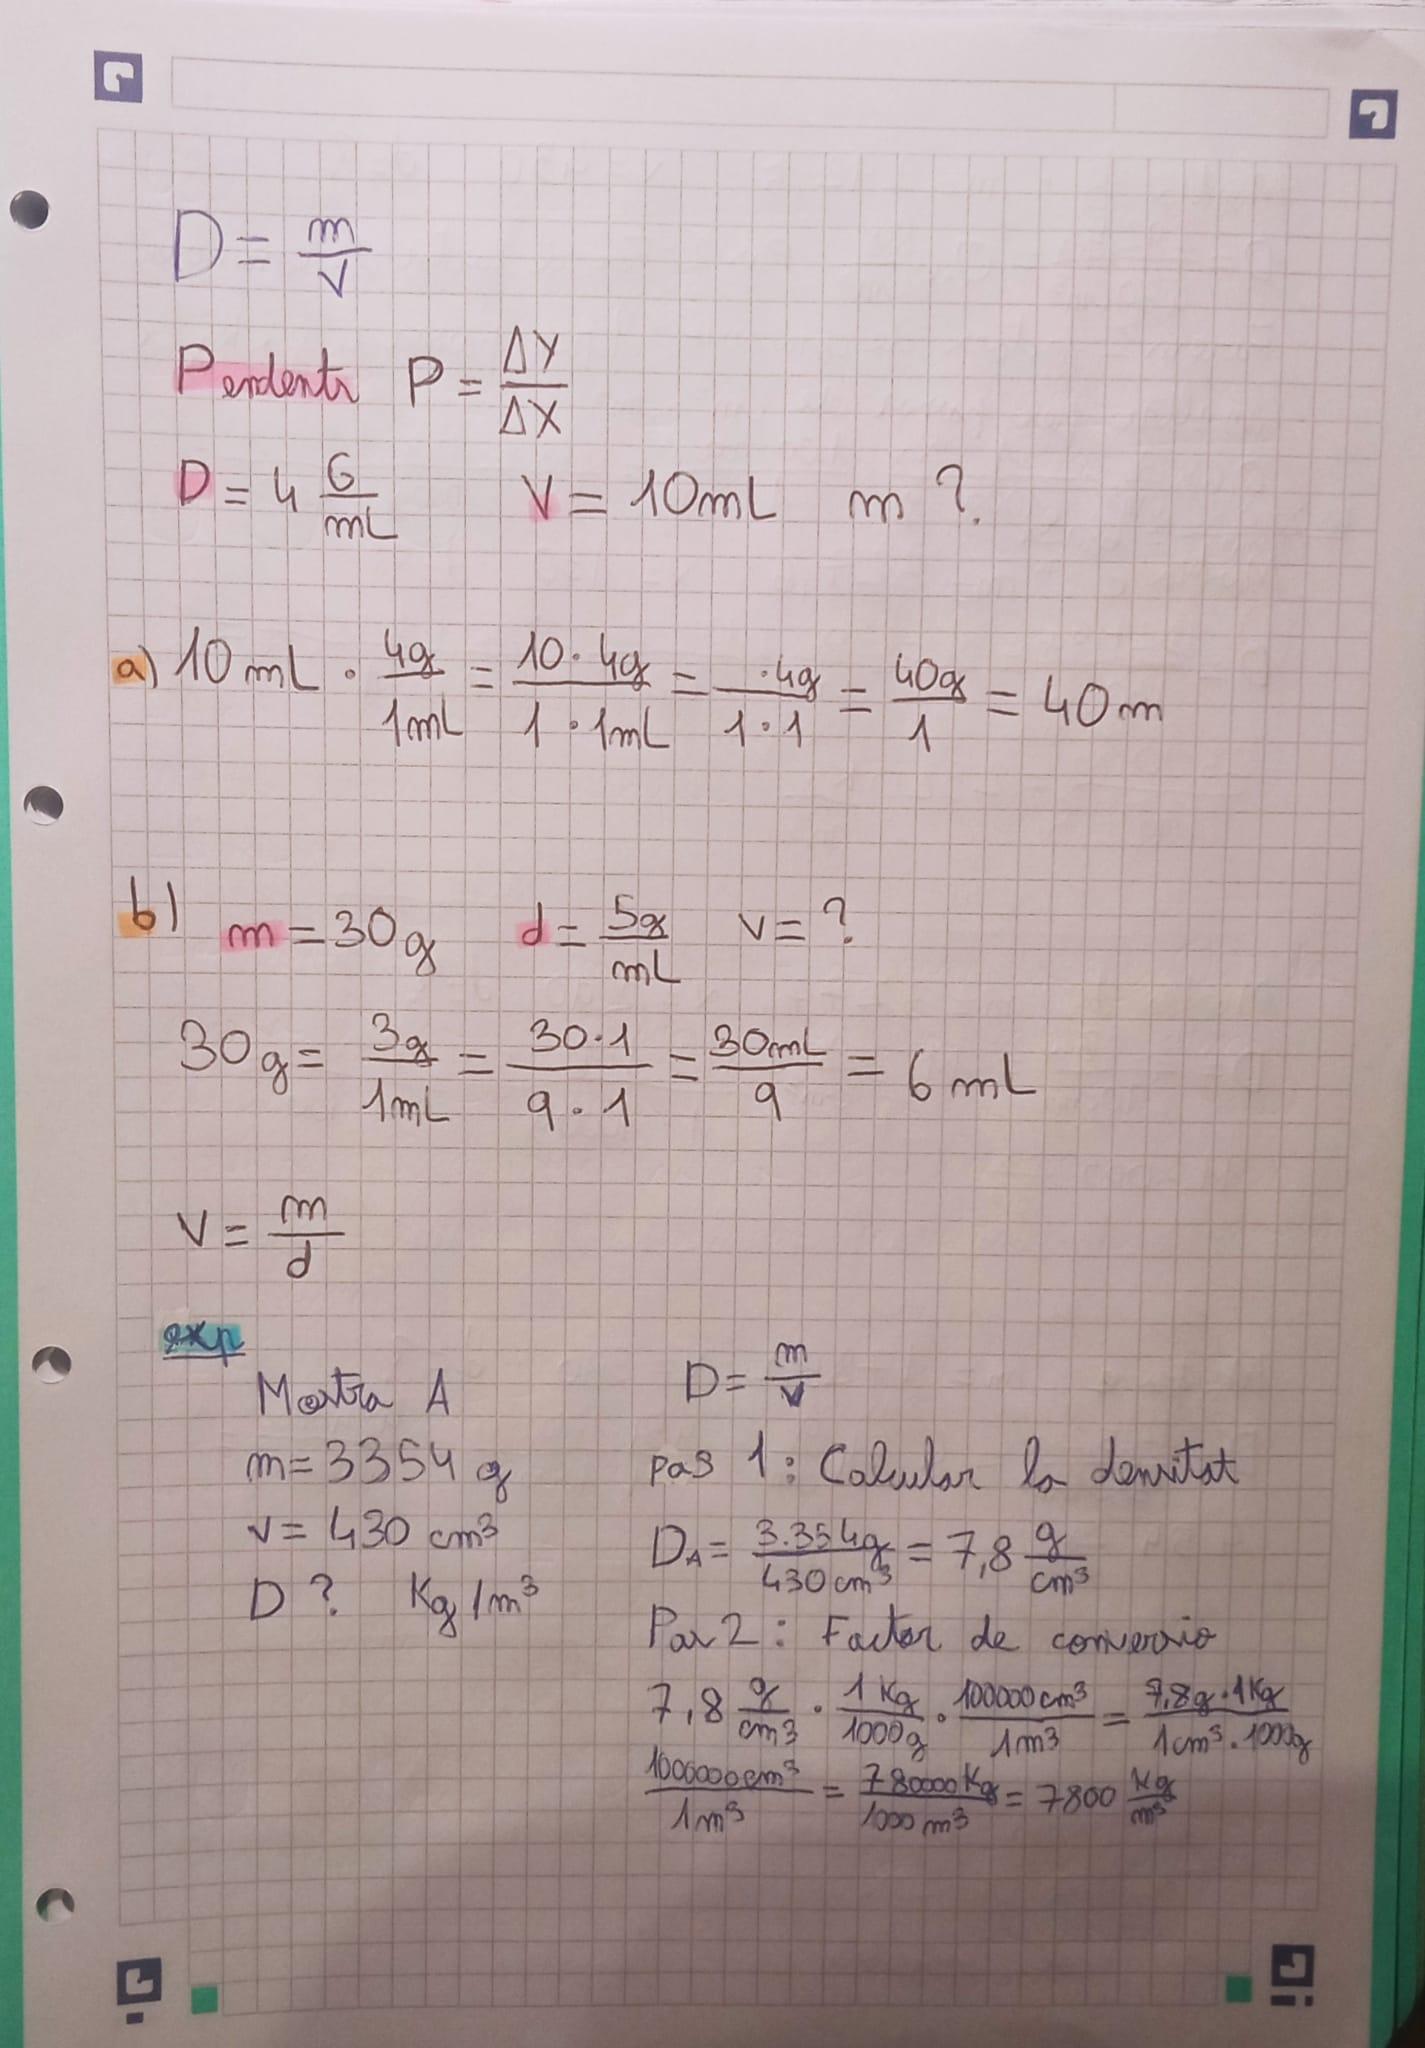 D = m/V
Pendents P = ΔY/ΔX
D = 4 G/mL V = 10mL m ?
a) 10 mL · 4g/1mL = 10·4g/1·1mL = ·4g/1·1 = 40g/1 = 40m
b) m = 30g d = 5g/mL v = ?
30g = 3g/1mL = 30·1/9·1 = 30mL/9 = 6 mL
V = m/d
exp
Mostra A
m = 3354 g
v = 430 cm³
D ? Kg/m³
D = m/v
pas 1: Calcular la densitat
D_A = 3.354g/430cm³ = 7,8 g/cm³
Pas 2: Factor de conversio
7,8 g/cm³ · 1 Kg/1000g · 100000cm³/1m³ = 7,8g·1Kg/1cm³·1000g
1000000cm³/1m³ = 780000Kg/1000m³ = 7800 Kg/m³